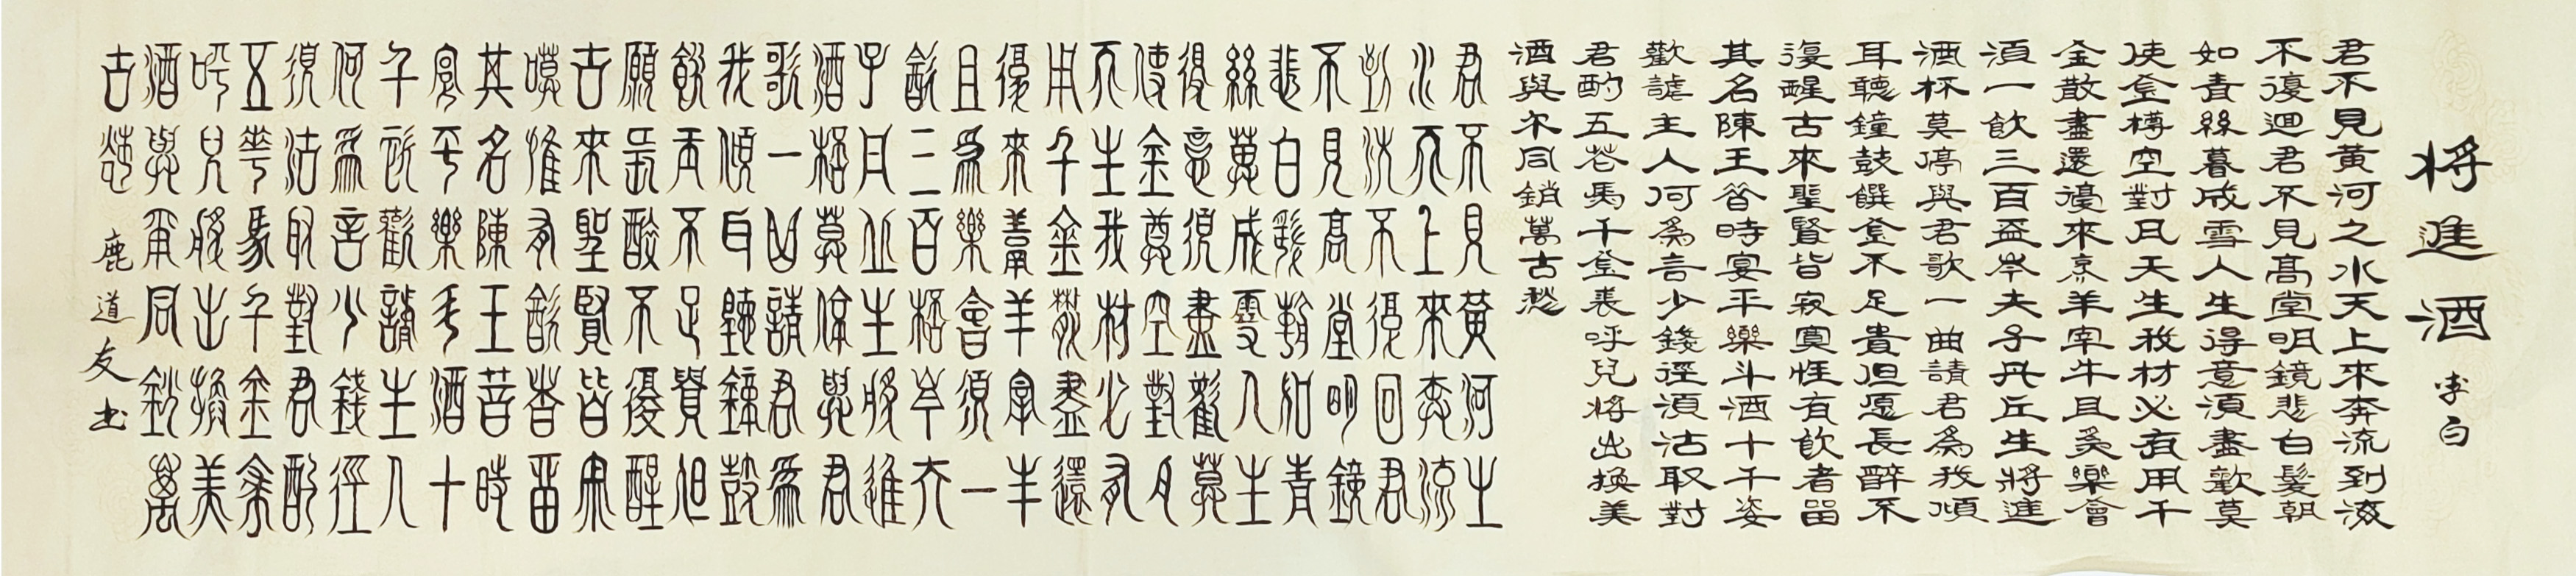 将進酒
李白
君不見黃河之水天上來奔流到海
不復迴君不見髙堂明鏡悲白髮朝
如青絲暮成雪人生得意須盡歡莫
使金樽空對月天生我材必有用千
金散盡還復來烹羊宰牛且爲樂會
須一飲三百盃岑夫子丹丘生將進
酒杯莫停與君歌一曲請君爲我傾
耳聽鐘鼓饌金不足貴但愿長醉不
復醒古來聖賢皆寂寞惟有飲者留
其名陳王昔時宴平樂斗酒十千恣
歡謔主人何爲言少錢徑須沽取對
君酌五花馬千金裘呼兒將出換美
酒與尔同銷萬古愁
君不見黃河之
水天上來奔流
到海不復回君
不見高堂明鏡
悲白髮朝如青
絲暮成雪人生
得意須盡歡莫
使金尊空對月
天生我材必有
用千金散盡還
復來烹羊宰牛
且爲樂會須一
飲三百杯岑夫
子丹丘生將進
酒杯莫停與君
歌一曲請君爲
我傾耳聽鐘鼓
饌玉不足貴但
願長醉不復醒
古來聖賢皆寂
寞惟有飲者留
其名陳王昔時
宴平樂斗酒十
千恣歡謔主人
何爲言少錢徑
須沽取對君酌
五花馬千金裘
呼兒將出換美
酒與爾同銷萬
古愁
鹿道友书